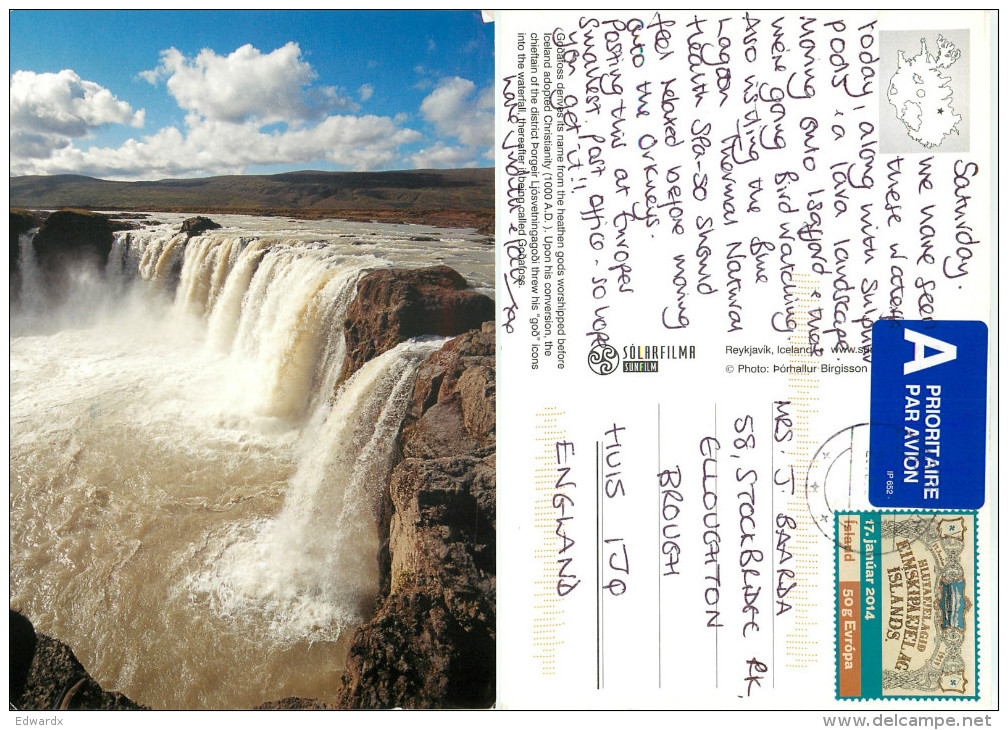 Saturday.
We have seen
these waters
today, along with sulphur
pools, i a lava landscape.
Moving onto Isafjord & that
we're going Bird Watching.
Also visiting the Blue
Lagoon Thermal Natural
Health Spa - so should
feel relaxed before moving
onto the Orkneys.
Posting this at Europes
Smallest Post office - so hope
you get it!!
Love
Goðafoss derives its name from the heathen gods worshipped before
Iceland adopted Christianity (1000 A.D.). Upon his conversion, the
chieftain of the district Þorgeir Ljósvetningagoði threw his "goð" icons
into the waterfall, thereafter it being called Goðafoss.
SÓLARFILMA
SUNFILM
Reykjavík, Iceland www.su
© Photo: Þórhallur Birgisson
A
PRIORITAIRE
PAR AVION
IP 652
MRS. J. BAARDA
58, STOCKBRIDGE RK,
ELLOUGHTON
BROUGH
HU15 1JQ
ENGLAND
Ísland
50g Evrópa
17. janúar 2014
HLUTAFJELAGIÐ
EIMSKIPAFJELAG
ÍSLANDS
Edwardx
www.delcampe.net